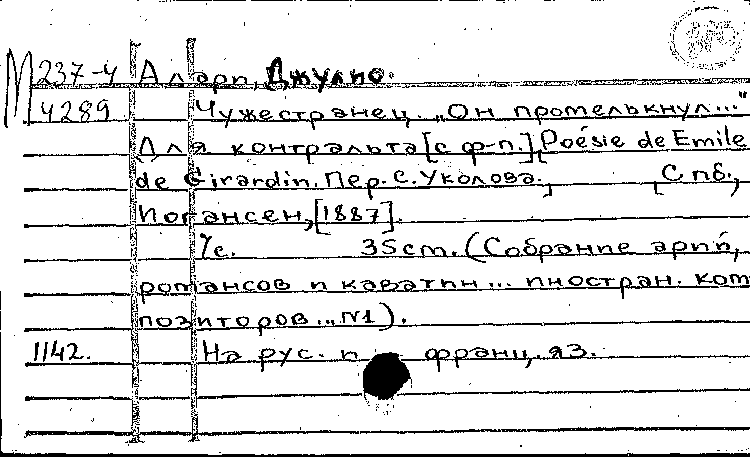 М 237-4 Аларп, Джулио.
4289 Чужестранец. „Он промелькнул..."
Для контральта [с ф-п.] Poésie de Emile
de Girardin. Пер. С. Уколова. [Спб.,
Иогансен, [1887].
7с. 35cm. (Собрание арий,
романсов и каватин... иностран. ком
позиторов... N1).
1142. На рус. и франц. яз.